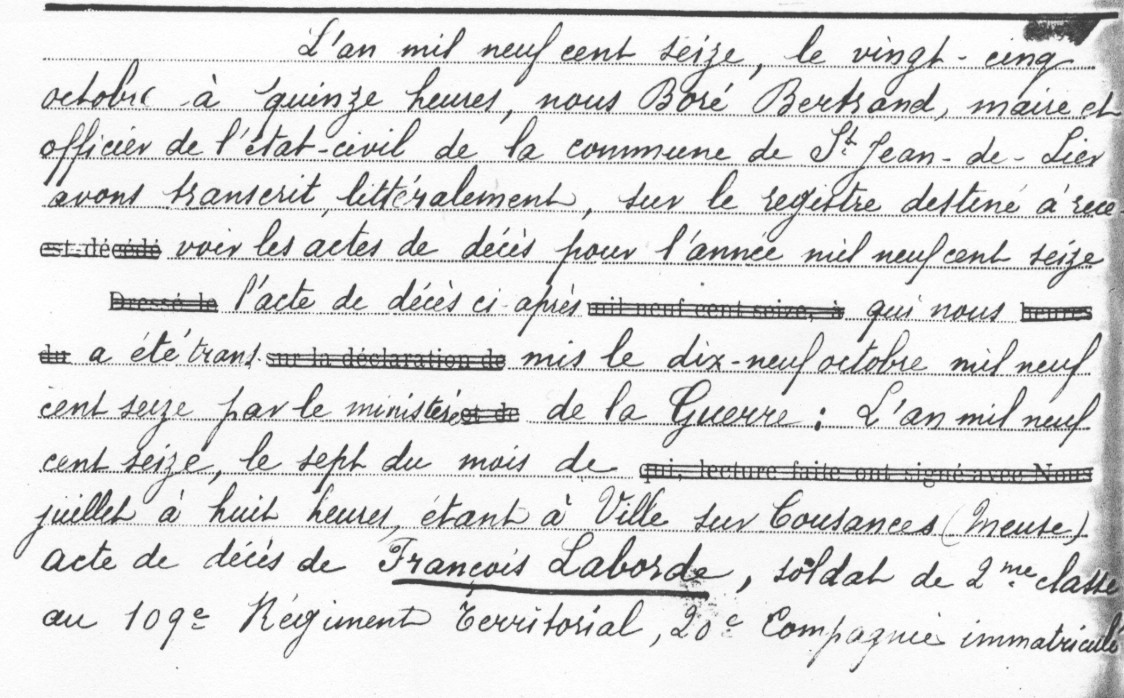 L'an mil neuf cent seize, le vingt-cinq
octobre à quinze heures, nous Boré Bertrand, maire et
officier de l'état-civil de la commune de St Jean-de-Lier
avons transcrit littéralement, sur le registre destiné à rece-
est décédé voir les actes de décès pour l'année mil neuf cent seize
Dressé le l'acte de décès ci-après mil neuf cent seize, à qui nous heures
du a été trans- sur la déclaration de mis le dix-neuf octobre mil neuf
cent seize par le ministère et de de la Guerre : L'an mil neuf
cent seize, le sept du mois de qui, lecture faite ont signé avec Nous
juillet à huit heures, étant à Ville sur Cousances (Meuse)
acte de décès de François Laborde, soldat de 2me classe
au 109e Régiment Territorial, 20e Compagnie immatriculé